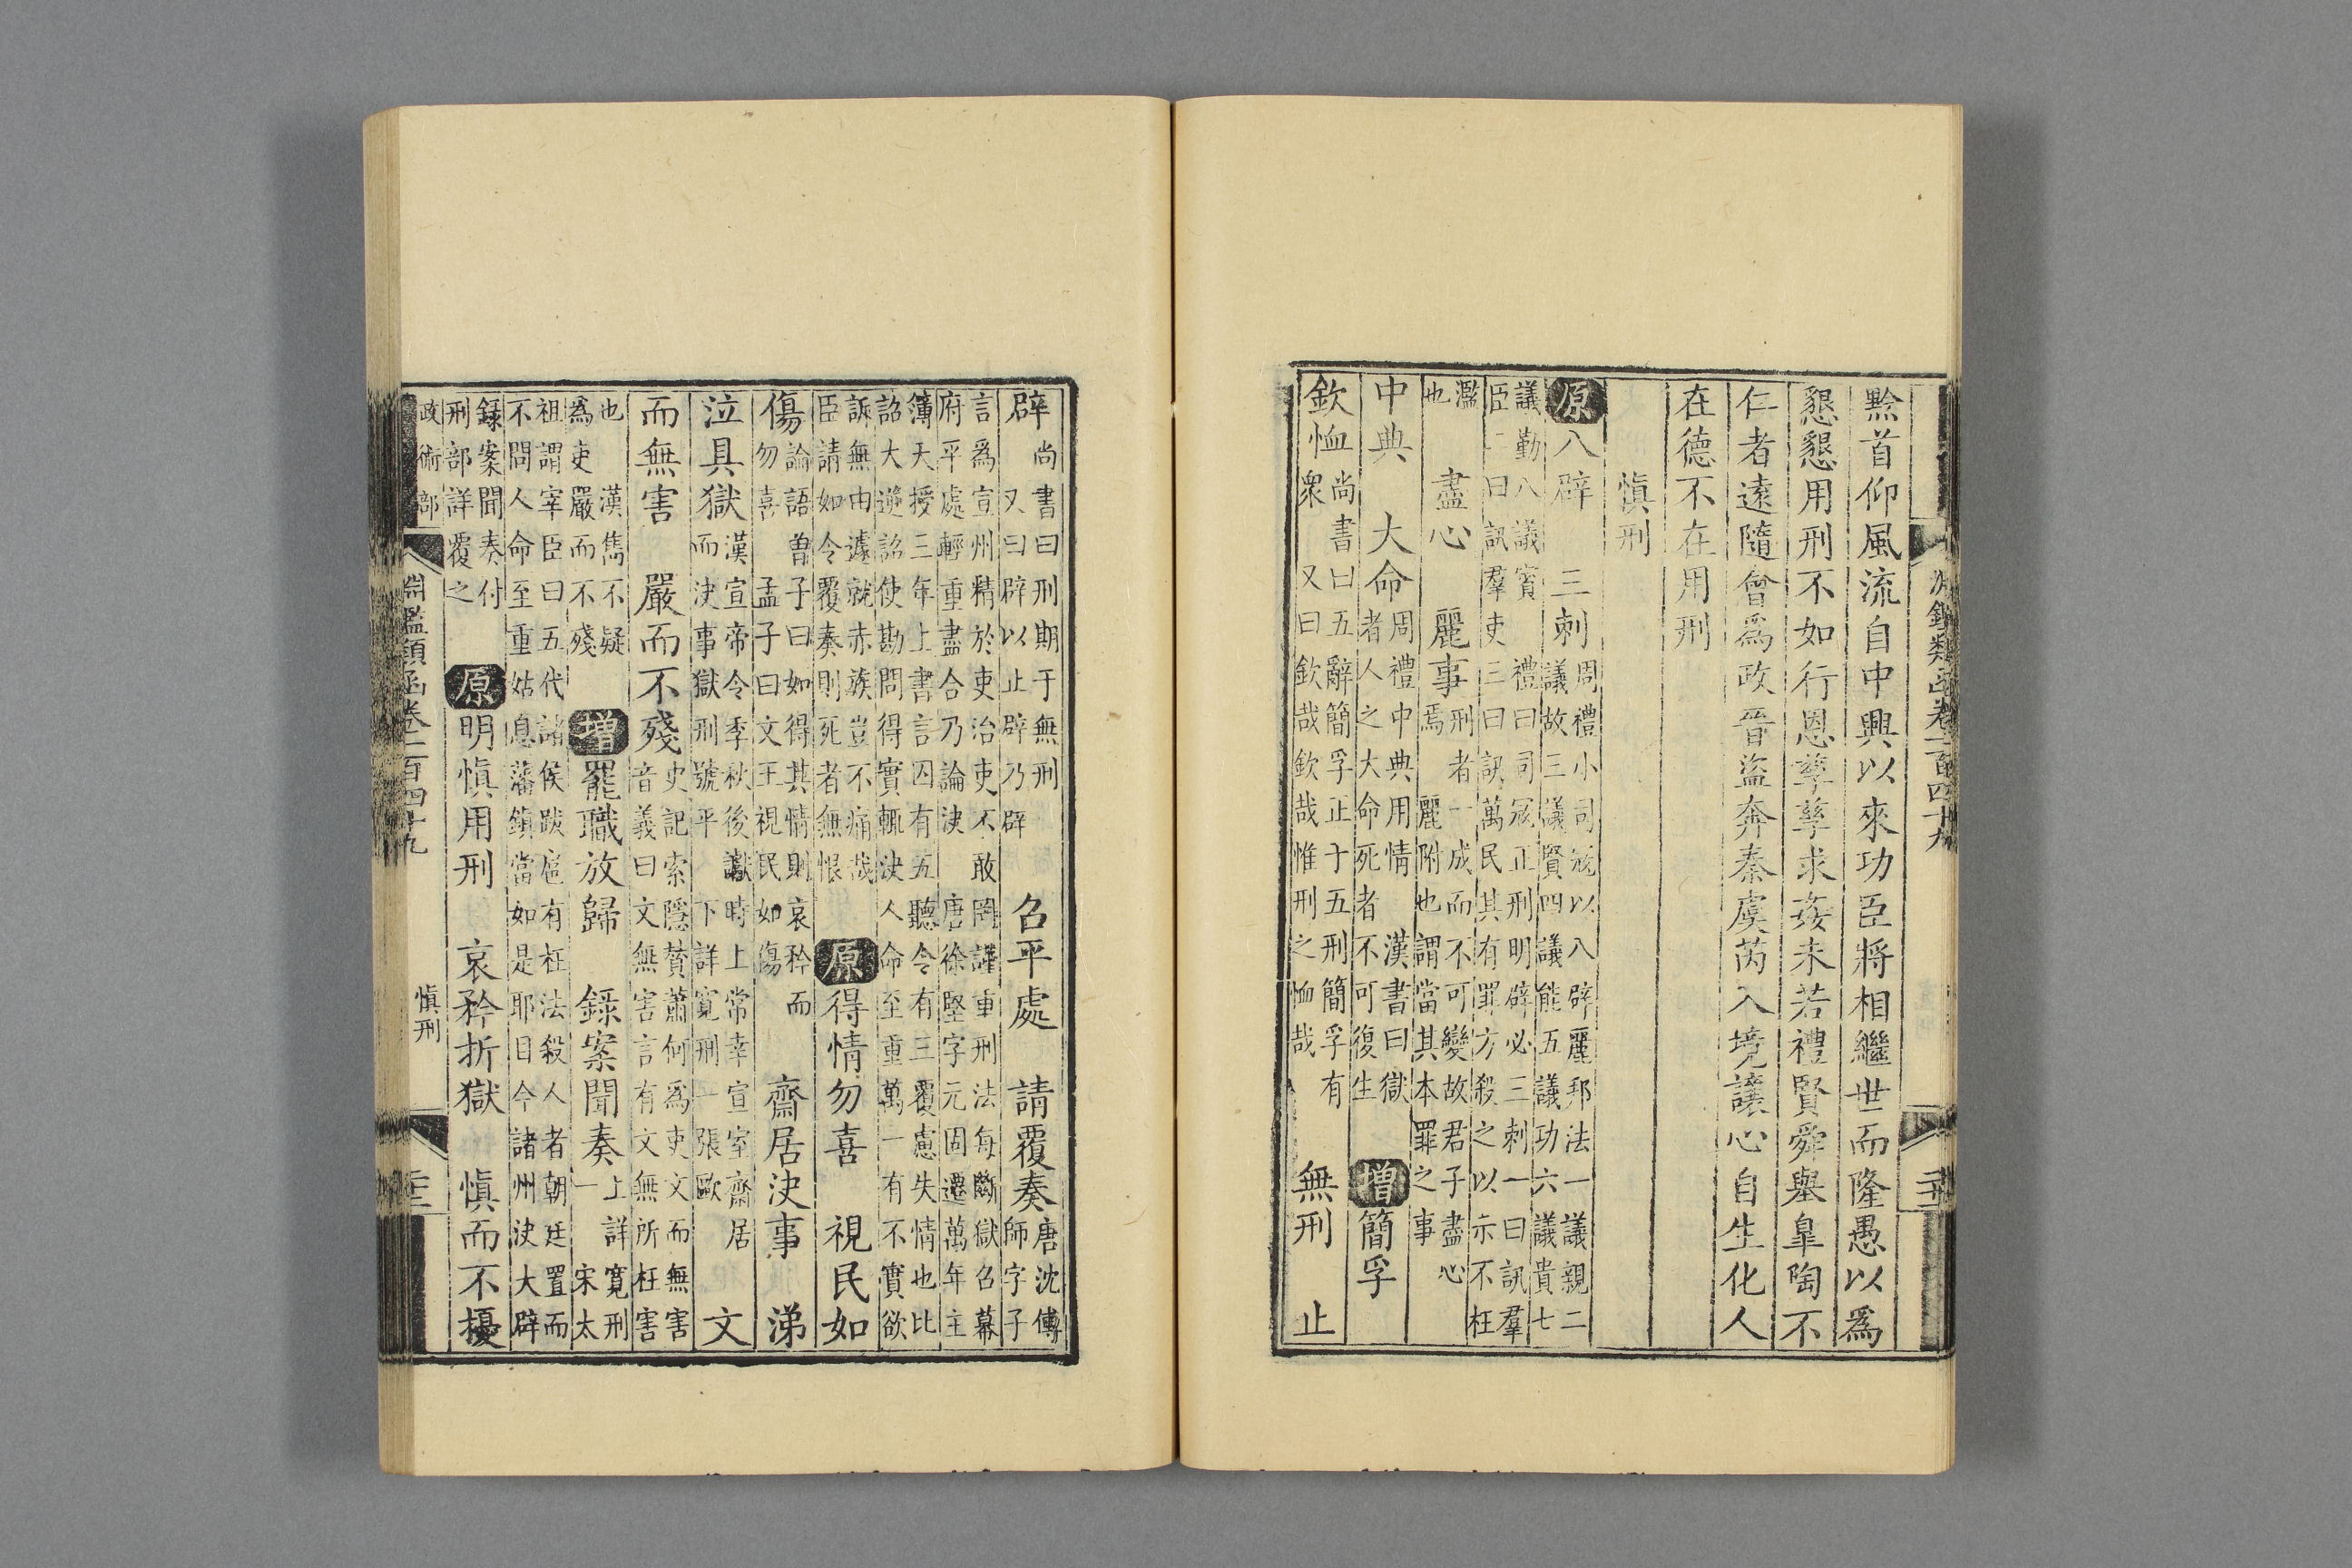 淵鑑類函卷二百四十九
黔首仰風流自中興以來功臣將相繼世而隆愚以爲
懇懇用刑不如行恩孳孳求姦未若禮賢舜舉皐陶不
仁者遠隨會爲政晉盜奔秦虞芮入境讓心自生化人
在德不在用刑
慎刑
原八辟 三刺 周禮小司寇以八辟麗邦法一議親二
議故三議賢四議能五議功六議貴七
議勤八議賓 禮曰司寇正刑明辟必三刺一曰訊羣
臣二曰訊羣吏三曰訊萬民其有罪方殺之以示不枉
濫
也 盡心 麗事 刑者一成而不可變故君子盡心
焉 麗附也謂當其本罪之事
中典 大命 周禮中典用情 漢書曰獄
者人之大命死者不可復生 增簡孚
欽恤 尚書曰五辭簡孚正于五刑簡孚有
衆 又曰欽哉欽哉惟刑之恤哉 無刑 止
辟 尚書曰刑期于無刑
又曰辟以止辟乃辟 召平處 請覆奏 唐沈傳
師字子
言爲宣州精於吏治吏不敢罔謹重刑法每斷獄召幕
府平處輕重盡合乃論決 唐徐堅字元固遷萬年主
簿天授三年上書言囚有五聽令有三覆慮失情也比
詔大逆詔使勘問得實輒決人命至重萬一有不實欲
訴無由遽就赤族豈不痛哉
臣請如令覆奏則死者無恨 原得情勿喜 視民如
傷 論語曽子曰如得其情則哀矜而
勿喜 孟子曰文王視民如傷 齋居決事 涕
泣具獄 漢宣帝令季秋後讞時上常幸宣室齋居
而決事獄刑號平 下詳寬刑一張歐 文
而無害 嚴而不殘 史記索隱贊蕭何爲吏文而無害
音義曰文無害言有文無所枉害
也 漢雋不疑
爲吏嚴而不殘 增罷職放歸 錄案聞奏 上詳寬刑
一 宋太
祖謂宰臣曰五代諸侯跋扈有枉法殺人者朝廷置而
不問人命至重姑息藩鎮當如是耶自今諸州決大辟
錄案聞奏付
刑部詳覆之 原明慎用刑 哀矜折獄 慎而不擾
政術部 淵鑑類函卷二百四十九 慎刑